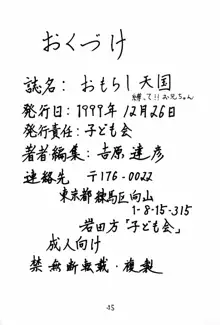 おくづけ
誌名：おもらし天国
縛って!!お兄ちゃん
発行日：1999年12月26日
発行責任：子ども会
著者編集：吉原達彦
連絡先 〒176-0022
東京都練馬区向山
1-8-15-315
岩田方「子ども会」
成人向け
禁無断転載・複製
45